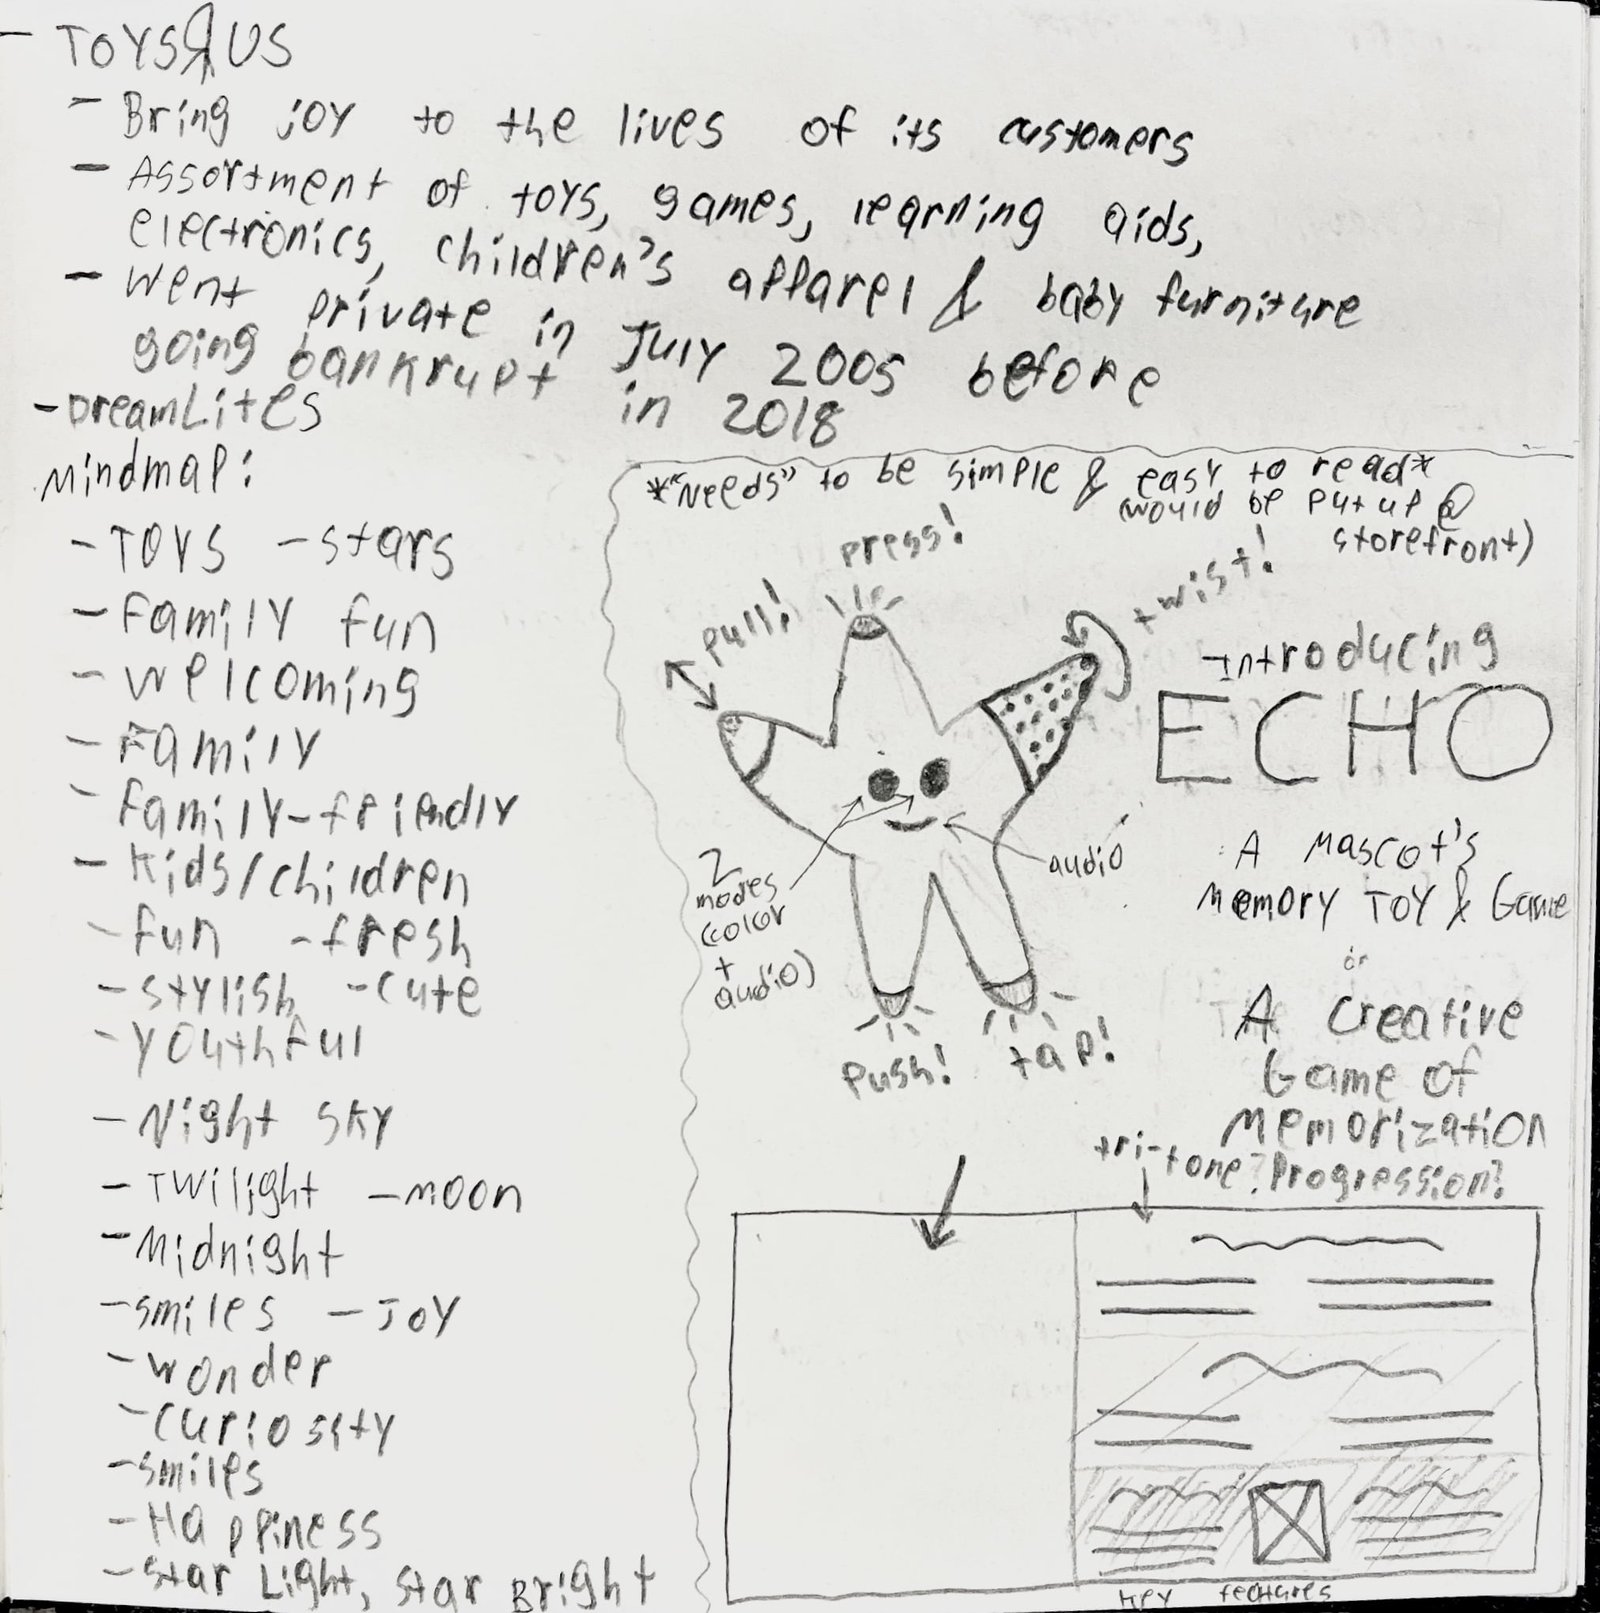 - TOYSЯUS
- Bring joy to the lives of its customers
- Assortment of toys, games, learning aids,
electronics, children's apparel & baby furniture
- Went private in July 2005 before
going bankrupt in 2018
- DreamLites
Mindmap:
- TOYS - stars
- Family fun
- welcoming
- Family
- Family-friendly
- Kids/children
- fun - fresh
- stylish - cute
- Youthful
- Night sky
- Twilight - moon
- Midnight
- smiles - Joy
- wonder
- curiosity
- smiles
- Happiness
- Star Light, Star Bright
*"Needs" to be simple & easy to read*
(would be put up @
storefront)
press!
pull!
twist!
Introducing
ECHO
2
modes
(color
+
audio)
audio
A Mascot's
Memory Toy & Game
or
A Creative
Game of
Memorization
push!
tap!
tri-tone? Progression?
key features